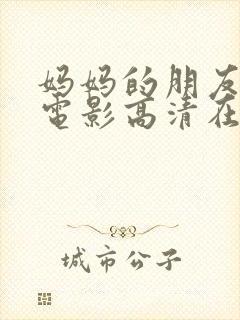 妈妈的朋友
電影高清在
城市公子